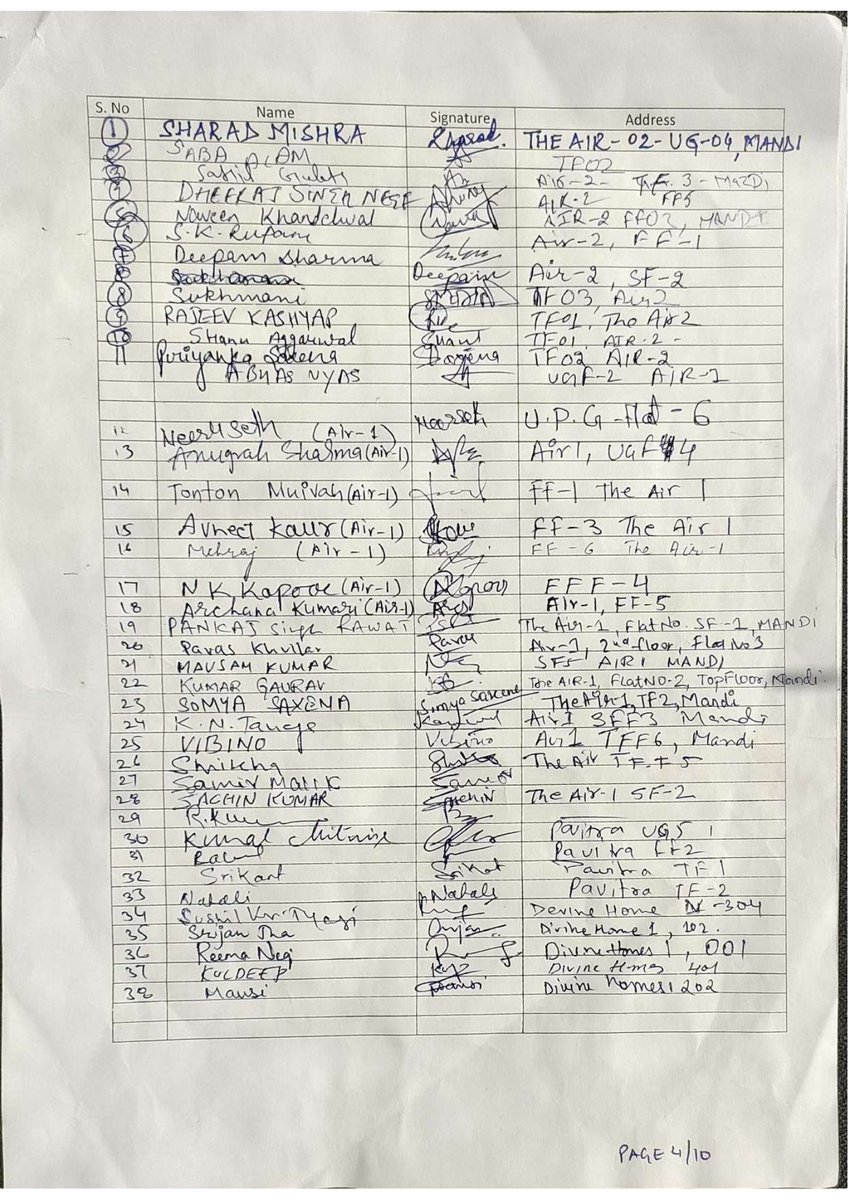 S. No Name Signature Address
1 SHARAD MISHRA THE AIR-02-UG-04, MANDI
SABA ALAM TF02
DHEERAJ SINGH NEGI AIR-2
Naveen Khandelwal AIR-2 FF03, MANDI
S.K. Rupani Air-2, FF-1
7 Deepam Sharma Deepam Air-2, SF-2
8 Sukhmani TF03, Air2
9 RAJEEV KASHYAP TF01, The Air2
10 Shanu Aggarwal Shanu TF01, AIR-2-
11 Puriyanka Saxena TF02 AIR-2
ABHAS VYAS UGF-2 AIR-1
12 Neeru Seth (Air-1) Neerseth U.P.G flat-6
13 Anugrah Sharma (Air-1) Air1, UGF 4
14 Tonton Muivah (Air-1) FF-1 The Air 1
15 Avneet Kaur (Air-1) FF-3 The Air 1
16 Mehraj (Air-1) FF-6 The Air-1
17 N.K. Kapoor (Air-1) FFF-4
18 Archana Kumari (Air-1) Air-1, FF-5
19 PANKAJ Singh RAWAT The Air-1, Flat No. SF-1, MANDI
20 Paras Khullar Paras Air-1, 2nd floor, Flat No 3
21 MAUSAM KUMAR SF5 AIR1 MANDI
22 KUMAR GAURAV The AIR-1, FLAT NO-2, Top Floor, Mandi.
23 SOMYA SAXENA Somya Saxena The Air-1, TF2, Mandi
24 K.N. Air1 3FF3 Mandi
25 VIBINO Vibino Air1 TFF6, Mandi
26 The Air TF-F5
27 SAMIR MALIK Samir
28 SACHIN KUMAR Sachin The Air-1 SF-2
29
30 Kunal Pavitra UG5 1
31 Pavitra FF2
32 Srikant Srikant Pavitra TF1
33 Nahali Nahali Pavitra TF-2
34 Sushil Kr. Tyagi Devine Home -304
35 Srijan Jha Divine Home 1, 102.
36 Reema Negi Divine Homes 1, 001
37 KULDEEP Divine Homes 401
38 Mansi Mansi Divine homes 1 202
PAGE 4/10